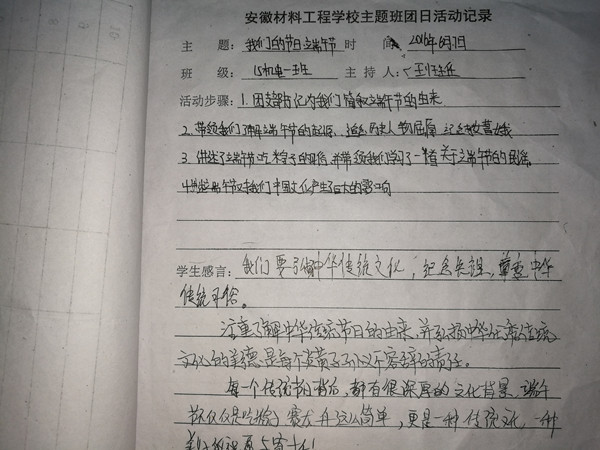 安徽材料工程学校主题班团日活动记录
主 题：我们的节日端午节 时 间 2016年6月7日
班 级：15机电一班 主 持 人：
活动步骤：1.团支部书记为我们简叙端午节的由来
2.带领我们了解端午节的起源、追忆历史人物屈原
3.讲述了端午节吃粽子的习俗 并带领我们学习了一首关于端午节的民谣
端午节对我们中国文化产生了巨大的影响
学生感言：我们要弘扬中华传统文化，纪念先祖，尊重中华
传统习俗。
注重了解中华传统节日的由来，并弘扬中华传统
文化的美德，是每个炎黄子孙义不容辞的责任。
每一个传统节日背后，都有很深厚的文化背景，端午
节仅仅是吃粽子赛龙舟这么简单，更是一种传统文化，一种